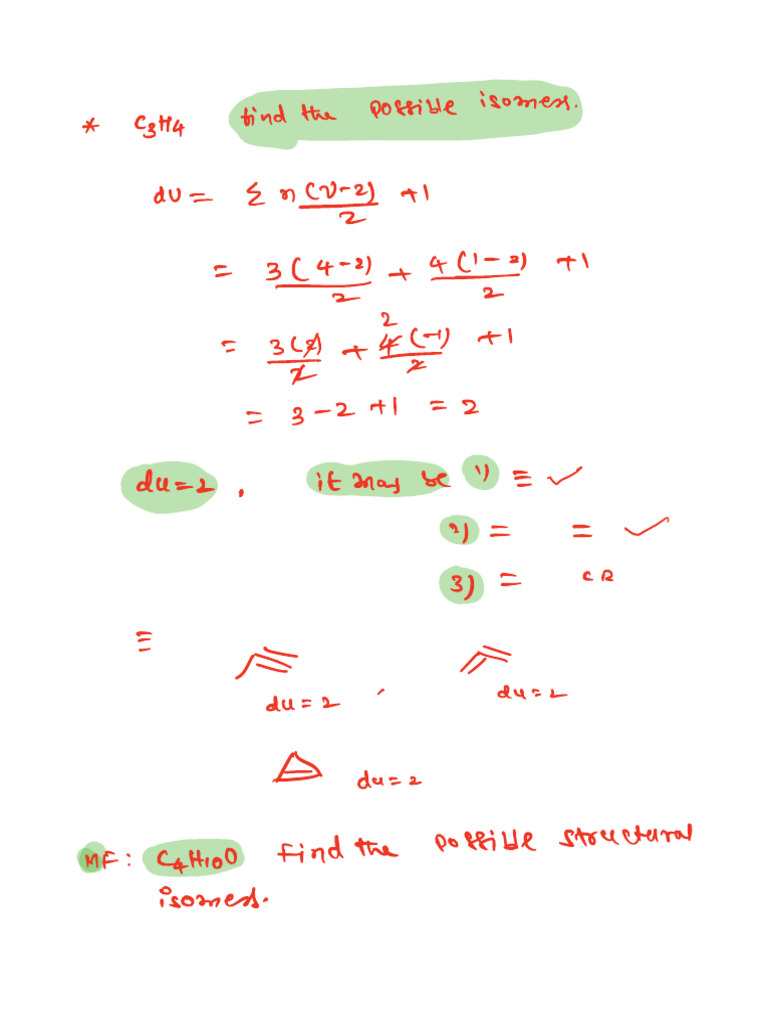 * C₃H₄ find the possible isomers.
du = Σ n(V-2)/2 + 1
= 3(4-2)/2 + 4(1-2)/2 + 1
= 3(2)/2 + 2 4(-1)/2 + 1
= 3-2+1 = 2
du=2, it may be 1) ≡ ✓
2) = = ✓
3) = CR
≡
du=2, du=2
du=2
MF: C₄H₁₀O find the possible structural
isomers.